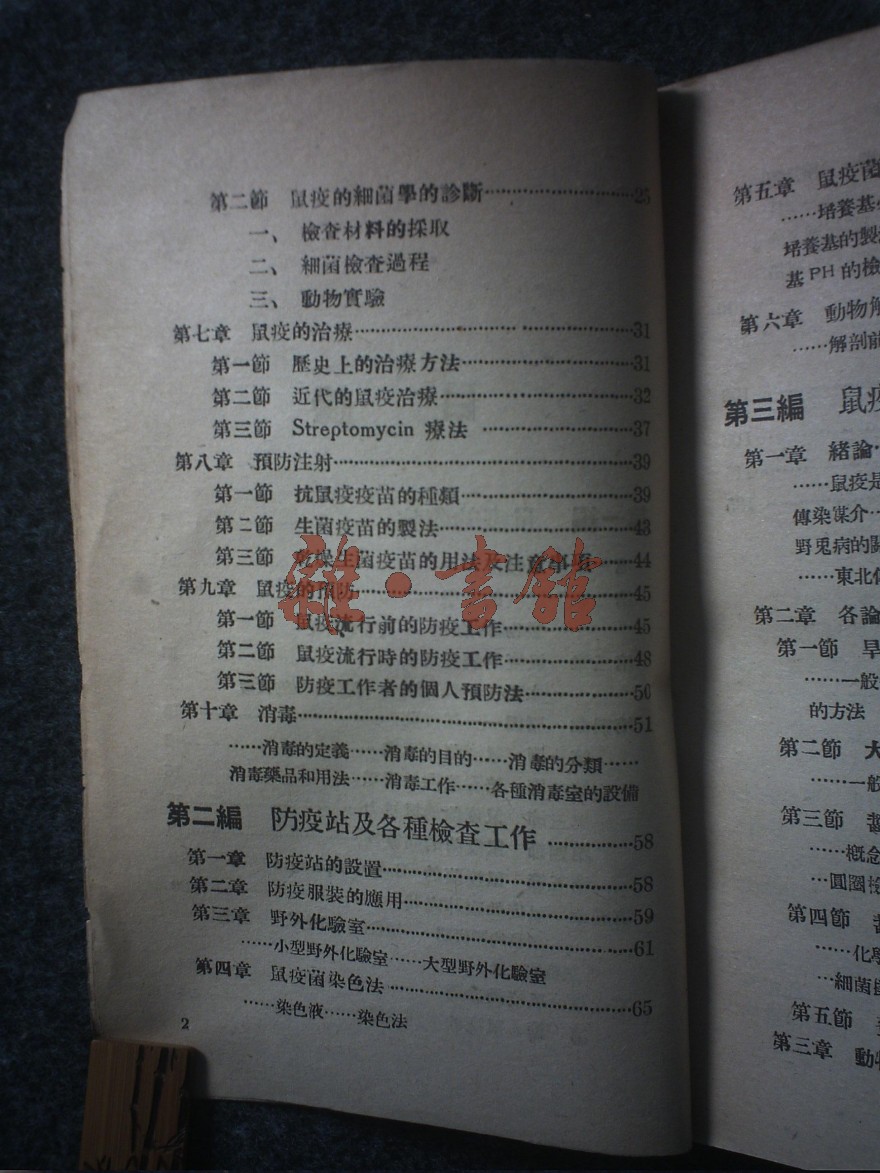 第二節 鼠疫的細菌學的診斷……………………25
一、 檢查材料的採取
二、 細菌檢查過程
三、 動物實驗
第七章 鼠疫的治療……………………31
第一節 歷史上的治療方法……………………31
第二節 近代的鼠疫治療……………………32
第三節 Streptomycin 療法 ……………………37
第八章 預防注射……………………39
第一節 抗鼠疫疫苗的種類……………………39
第二節 生菌疫苗的製法……………………43
第三節 乾燥生菌疫苗的用法及注意事項……44
第九章 鼠疫的預防……………………45
第一節 鼠疫流行前的防疫工作……………………45
第二節 鼠疫流行時的防疫工作……………………48
第三節 防疫工作者的個人預防法……………………50
第十章 消毒……………………51
……消毒的定義……消毒的目的……消毒的分類……
消毒藥品和用法……消毒工作……各種消毒室的設備
第二編 防疫站及各種檢查工作 …………58
第一章 防疫站的設置……………………58
第二章 防疫服裝的應用……………………59
第三章 野外化驗室……………………61
……小型野外化驗室……大型野外化驗室
第四章 鼠疫菌染色法……………………65
……染色液……染色法
2
雜·書館
第五章 鼠疫菌
……培養基
培養基的製
基PH的檢
第六章 動物解
……解剖前
第三編 鼠疫
第一章 緒論
……鼠疫是
傳染媒介…
野兎病的關
……東北
第二章 各論
第一節 早
……一般
的方法
第二節 大
……一般
第三節
……概念
…圓圈
第四節
……化學
…細菌
第五節
第三章 動物